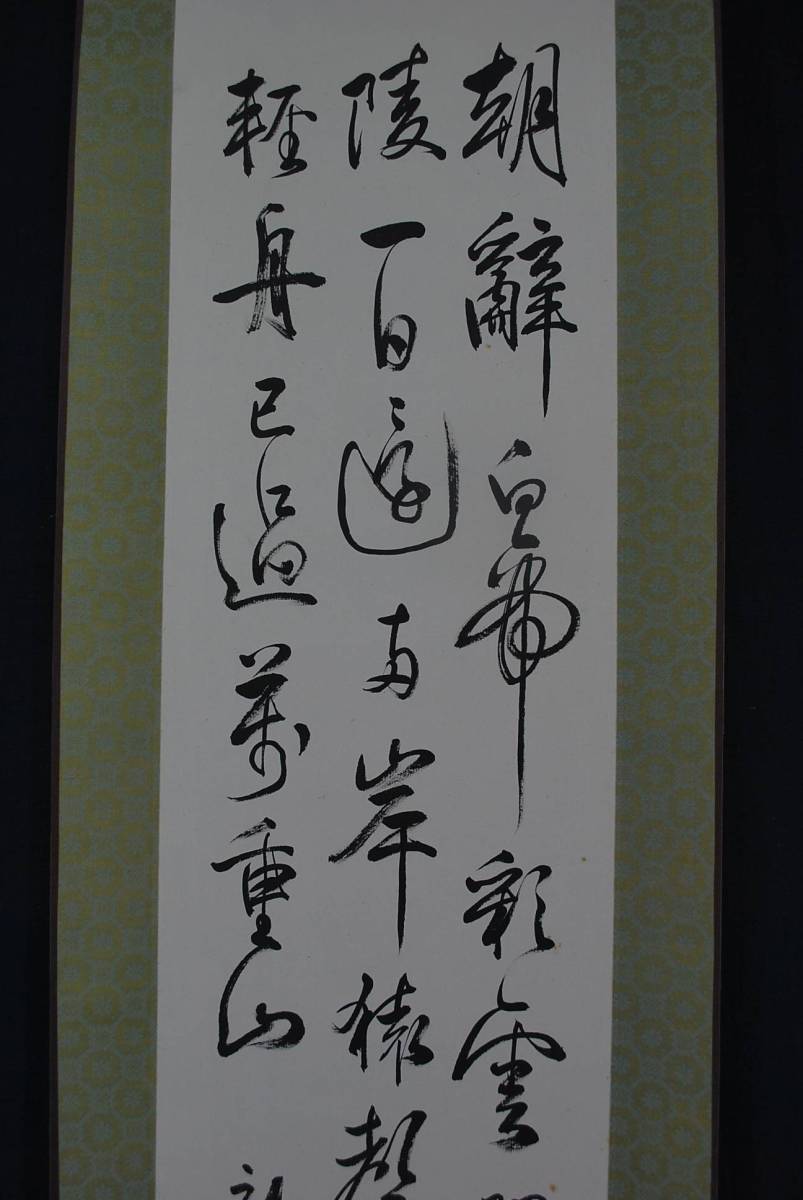 朝辭白帝彩雲
陵一日還兩岸猿聲
輕舟已過萬重山